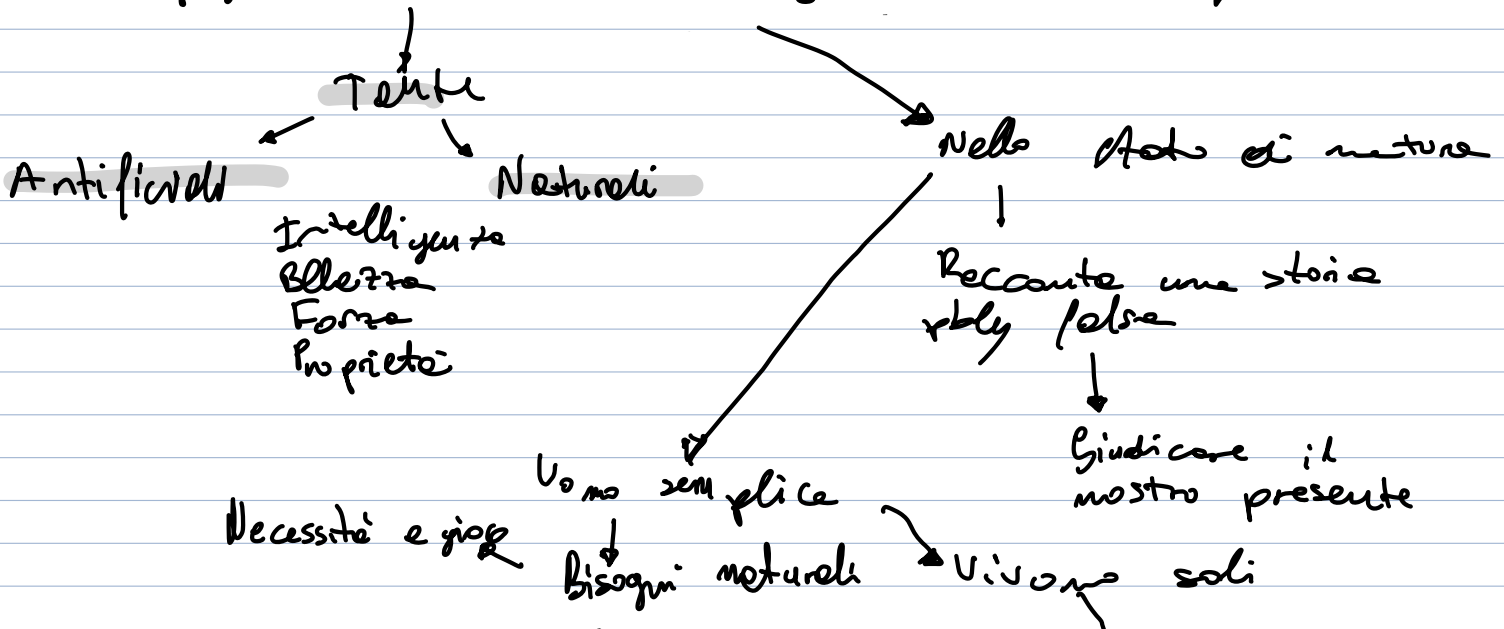 Tante
Artificiali
Naturali
Intelligenza
Bllezza
Forza
Proprietà
Nello stato di natura
Racconta una storia
pbly falsa
Giudicare il
nostro presente
Uomo semplice
Necessità e gioco
Bisogni naturali
Vivono soli